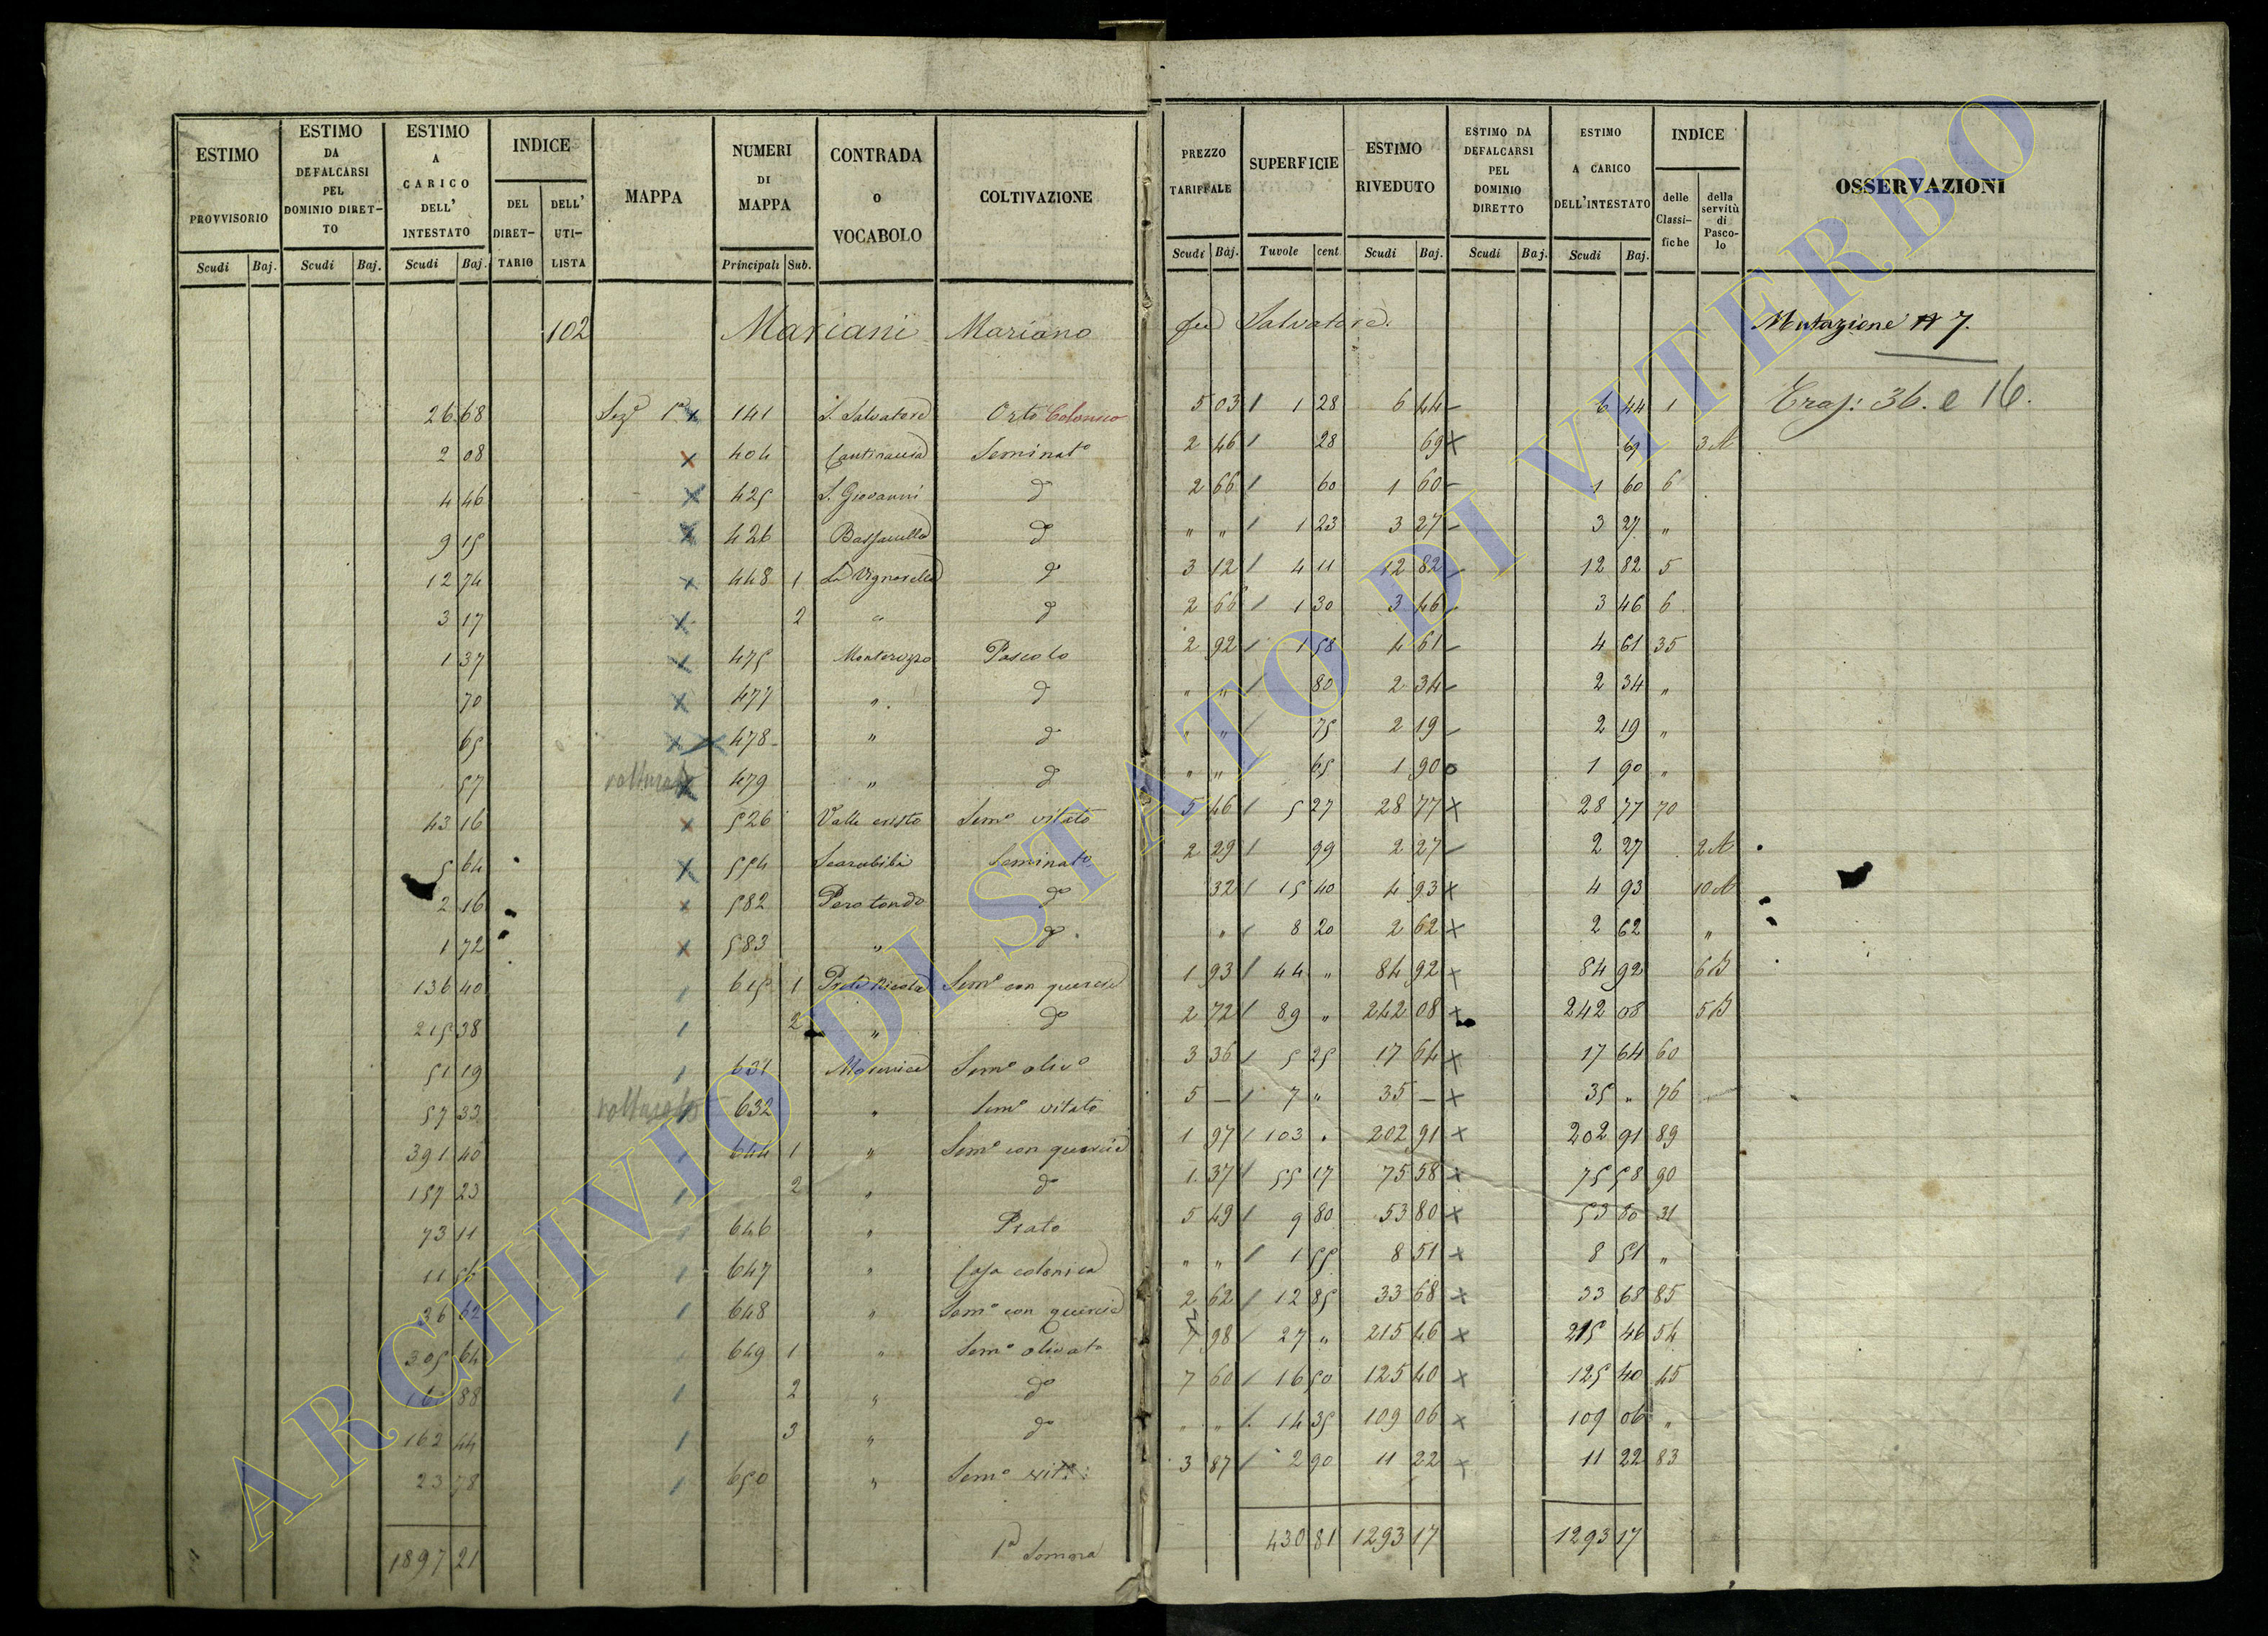 ESTIMO PROVVISORIO Scudi Baj.
ESTIMO DA DEFALCARSI PEL DOMINIO DIRET-TO Scudi Baj.
ESTIMO A CARICO DELL' INTESTATO Scudi Baj.
INDICE DEL DIRET-TARIO DELL' UTI-LISTA
MAPPA
NUMERI DI MAPPA Principali Sub.
CONTRADA O VOCABOLO
COLTIVAZIONE
PREZZO TARIFFALE Scudi Baj.
SUPERFICIE Tuvole cent
ESTIMO RIVEDUTO Scudi Baj.
ESTIMO DA DEFALCARSI PEL DOMINIO DIRETTO Scudi Baj.
ESTIMO A CARICO DELL'INTESTATO Scudi Baj.
INDICE delle Classi-fiche della servitù di Pasco-lo
OSSERVAZIONI
102 Mariani Mariano fu Salvatore. Mutazione N 7.
26 68 Sez.e 1a x 141 S. Salvatore Orto Colonico 5 03 / 1 28 6 44 – 6 44 1 Trasp: 36. e 16.
2 08 x 404 Seminato 2 46 / 28 69 x 69 3 A
4 46 x 425 S. Giovanni do 2 66 / 60 1 60 – 1 60 6
9 15 x 426 do " " / 1 23 3 27 – 3 27 "
12 74 x 448 1 La Vignarella do 3 12 / 4 11 12 82 – 12 82 5
3 17 x 2 " do 2 66 / 1 30 3 46 – 3 46 6
1 37 x 475 Monterozzo Pascolo 2 92 / 1 58 4 61 – 4 61 35
70 x 477 " do " " / 80 2 34 – 2 34 "
65 x x 478 " do " " / 75 2 19 – 2 19 "
57 volturato x 479 " do " " 65 1 90 o 1 90 "
43 16 x 526 Valle cristo Sem.o vitato 5 46 / 5 27 28 77 x 28 77 70
5 64 x 554 Scarabibi Seminato 2 29 / 99 2 27 – 2 27 2 A
2 16 x 582 Pero tondo do 32 / 15 40 4 93 x 4 93 10 A
1 72 x 583 " do " / 8 20 2 62 x 2 62 "
136 40 / 615 1 Prato Nicola Sem.o con querce 1 93 / 44 " 84 92 x 84 92 6 B
215 38 / 2 " do 2 72 / 89 " 242 08 x 242 08 5 B
51 19 / 631 Sem.o oliv.o 3 36 / 5 25 17 64 x 17 64 60
57 33 volturato / 632 " Sem.o vitato 5 – / 7 " 35 – x 35 " 76
391 40 / 644 1 " Sem.o con querce 1 97 / 103 . 202 91 x 202 91 89
157 23 / 2 " do 1 37 / 55 17 75 58 x 75 58 90
73 11 / 646 " Prato 5 49 / 9 80 53 80 x 53 80 31
11 56 / 647 " Casa colonica " " / 1 55 8 51 x 8 51 "
36 62 / 648 " Sem.o con querce 2 62 / 12 85 33 68 x 33 68 85
305 64 / 649 1 " Sem.o olivato 7 98 / 27 " 215 46 x 215 46 54
88 / 2 " do 7 60 / 16 50 125 40 x 125 40 45
162 44 / 3 " do " " / 14 35 109 06 x 109 06 "
23 78 / 650 " Sem.o vit.o 3 87 / 2 90 11 22 x 11 22 83
1897 21 1a Somma 430 81 1293 17 1293 17
ARCHIVIO DI STATO DI VITERBO